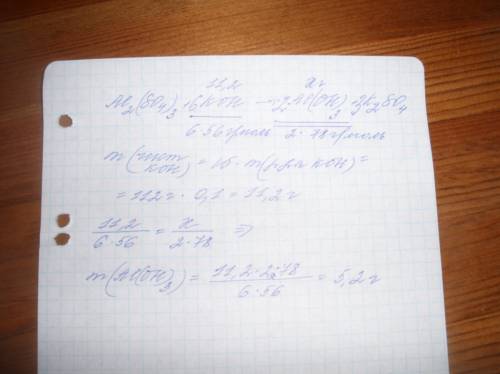 11,2 x г
Al₂(SO₄)₃ + 6KOH → 2Al(OH)₃ + 3K₂SO₄
6·56 г/моль 2·78 г/моль
m(чист KOH) = ω · m(р-ра KOH) =
= 112 г · 0,1 = 11,2 г
11,2 / 6·56 = x / 2·78 ⇒
m(Al(OH)₃) = 11,2·2·78 / 6·56 = 5,2 г